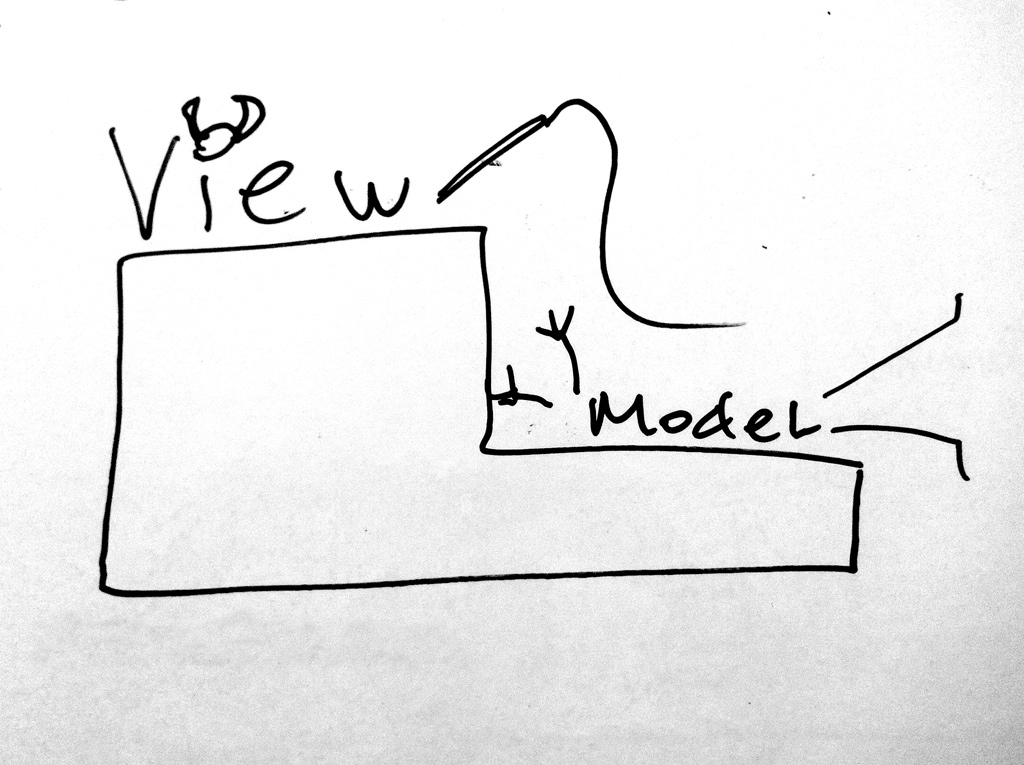 View
Model